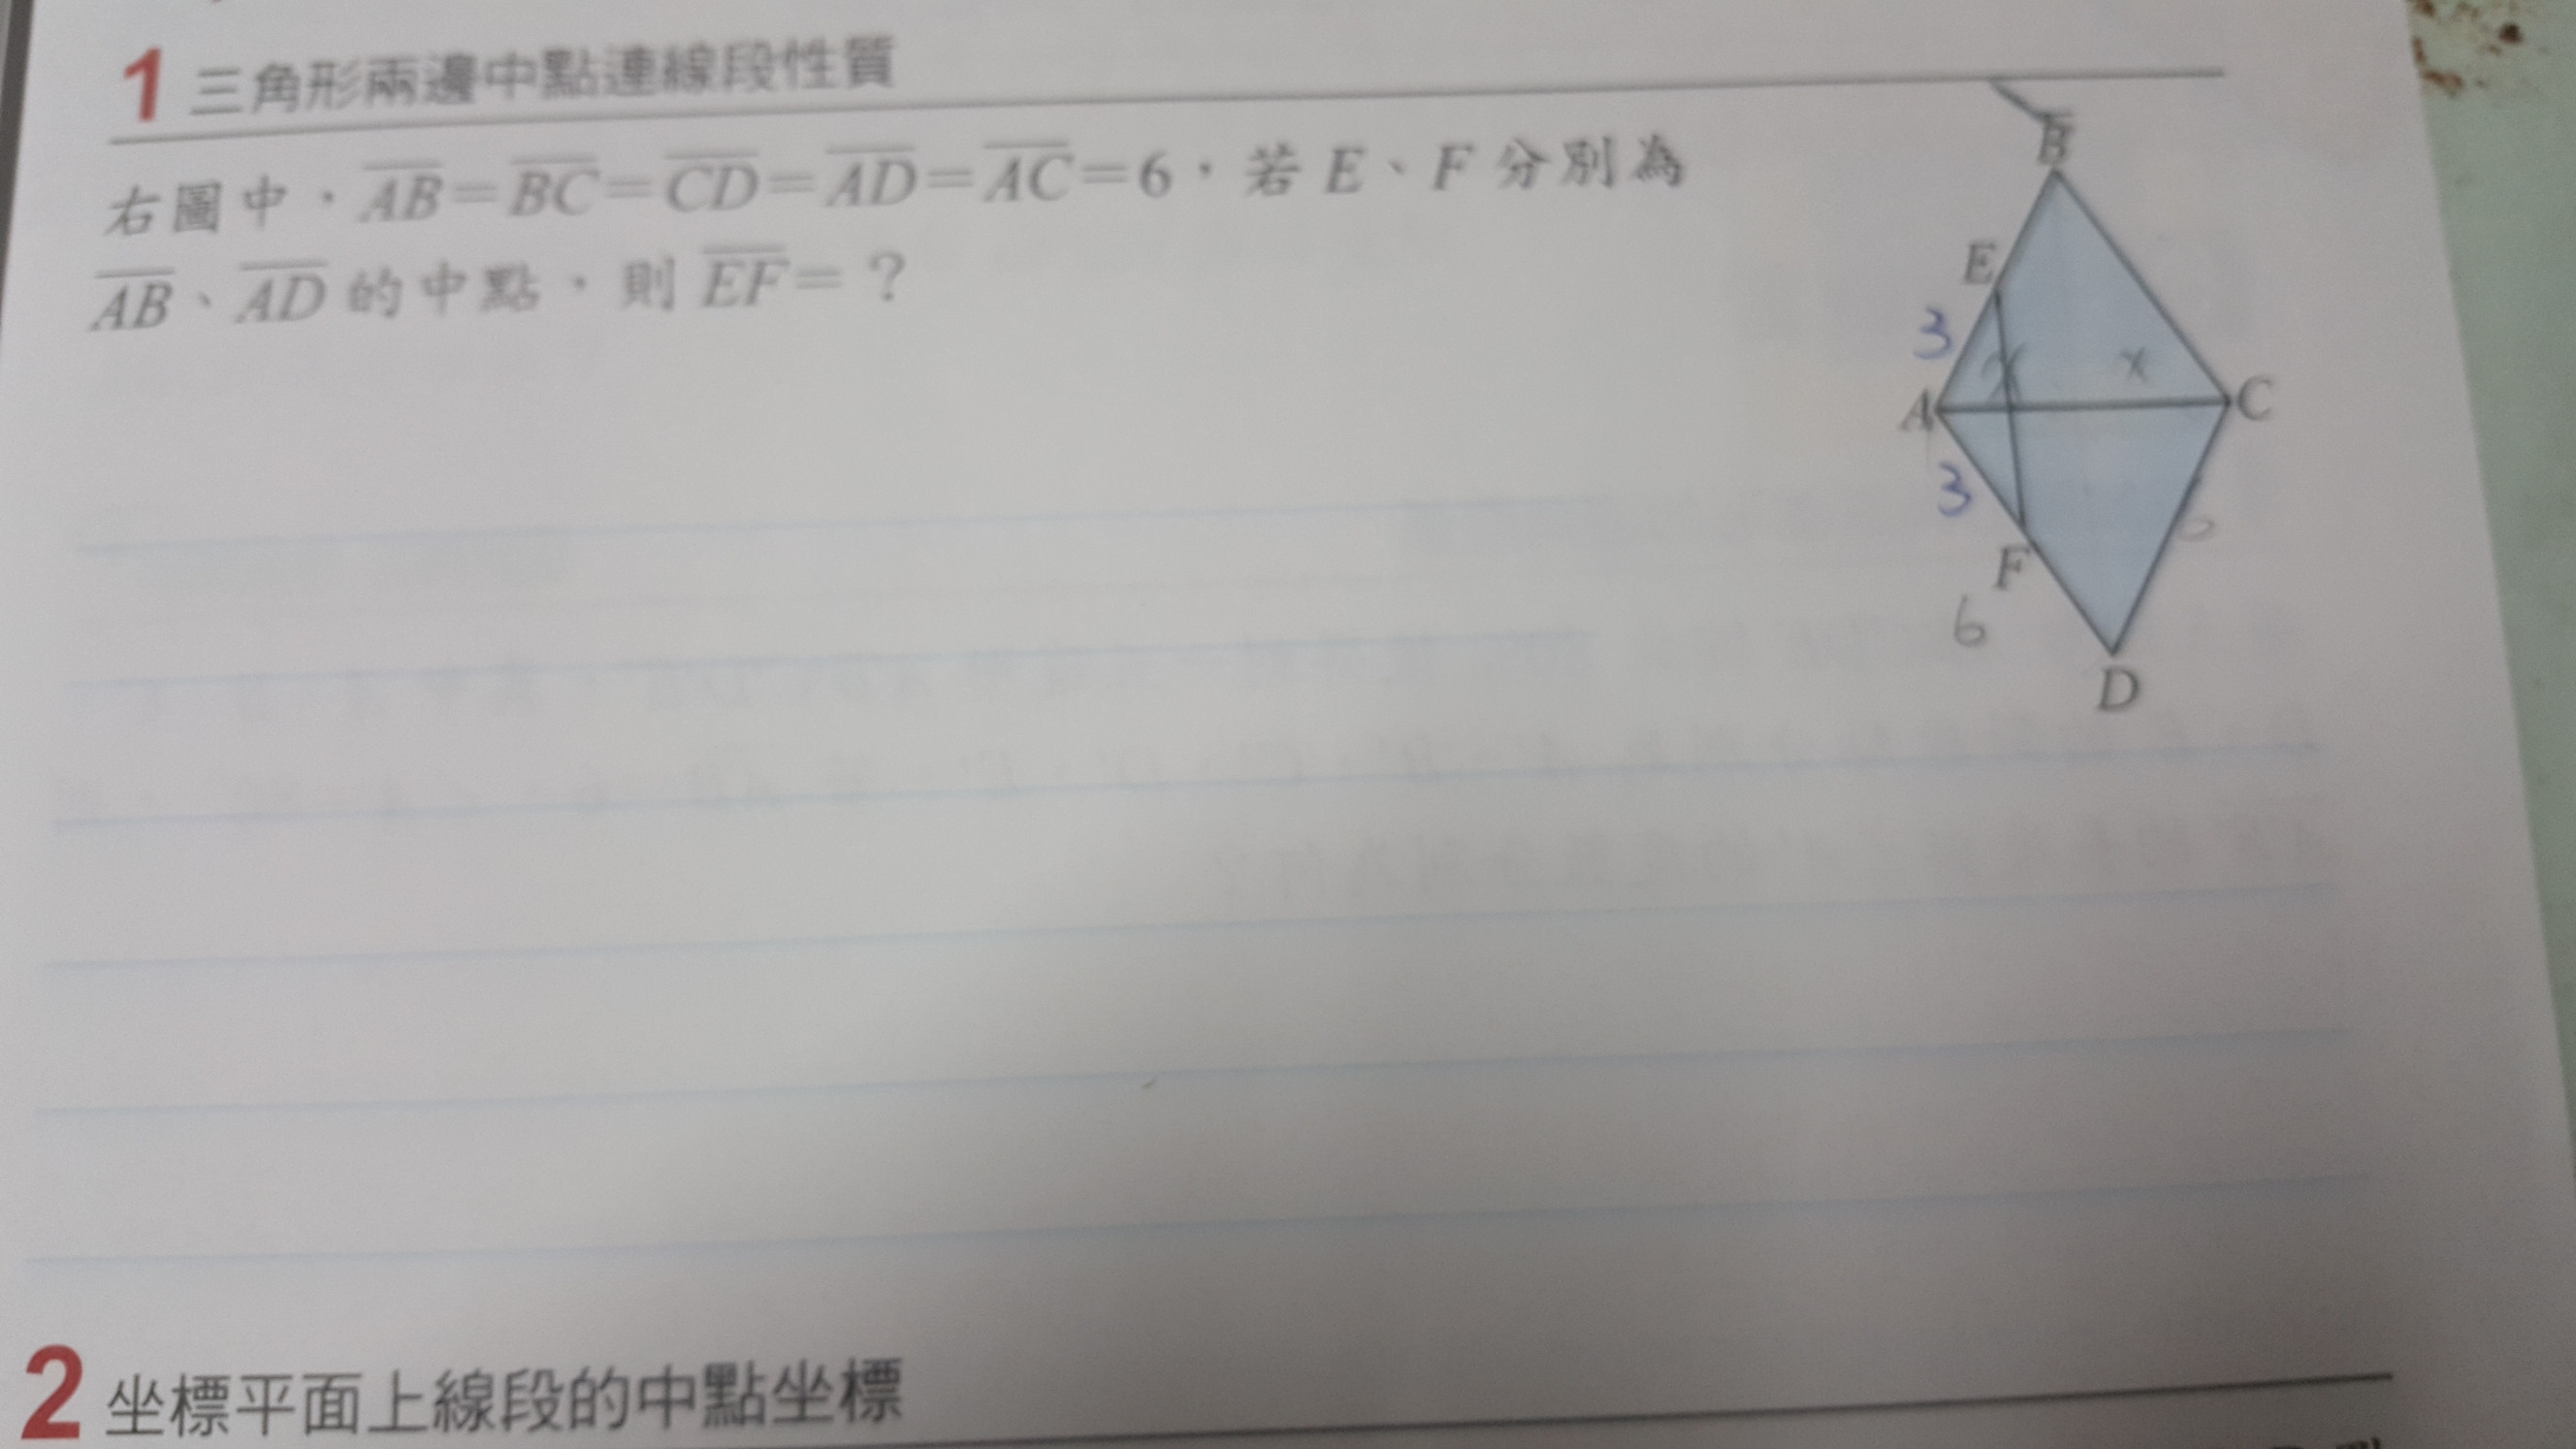 1 三角形兩邊中點連線段性質
右圖中，AB=BC=CD=AD=AC=6，若 E、F 分別為
AB、AD 的中點，則 EF=？
B
E
3
x
x
A
C
3
F
6
D
2 坐標平面上線段的中點坐標